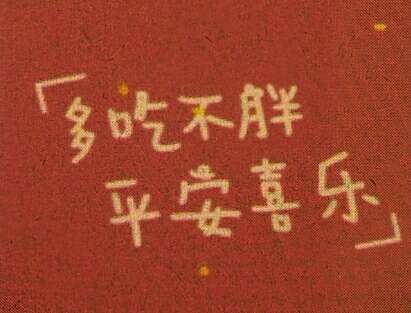 「多吃不胖
平安喜乐」